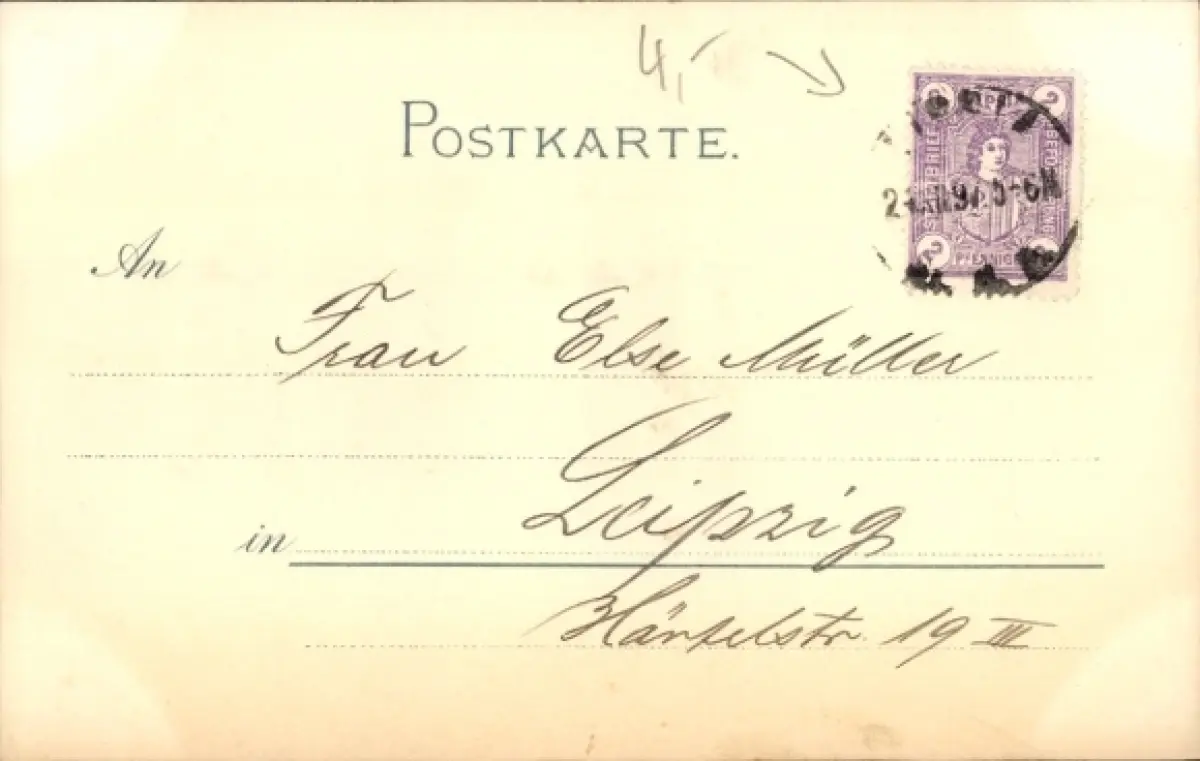 4,-
POSTKARTE.
2 2
STADTBRIEF BEFÖRDERUNG
2
PFENNIG
5-6N
An
Frau Else Müller
Leipzig
in
Härtelstr. 19 III